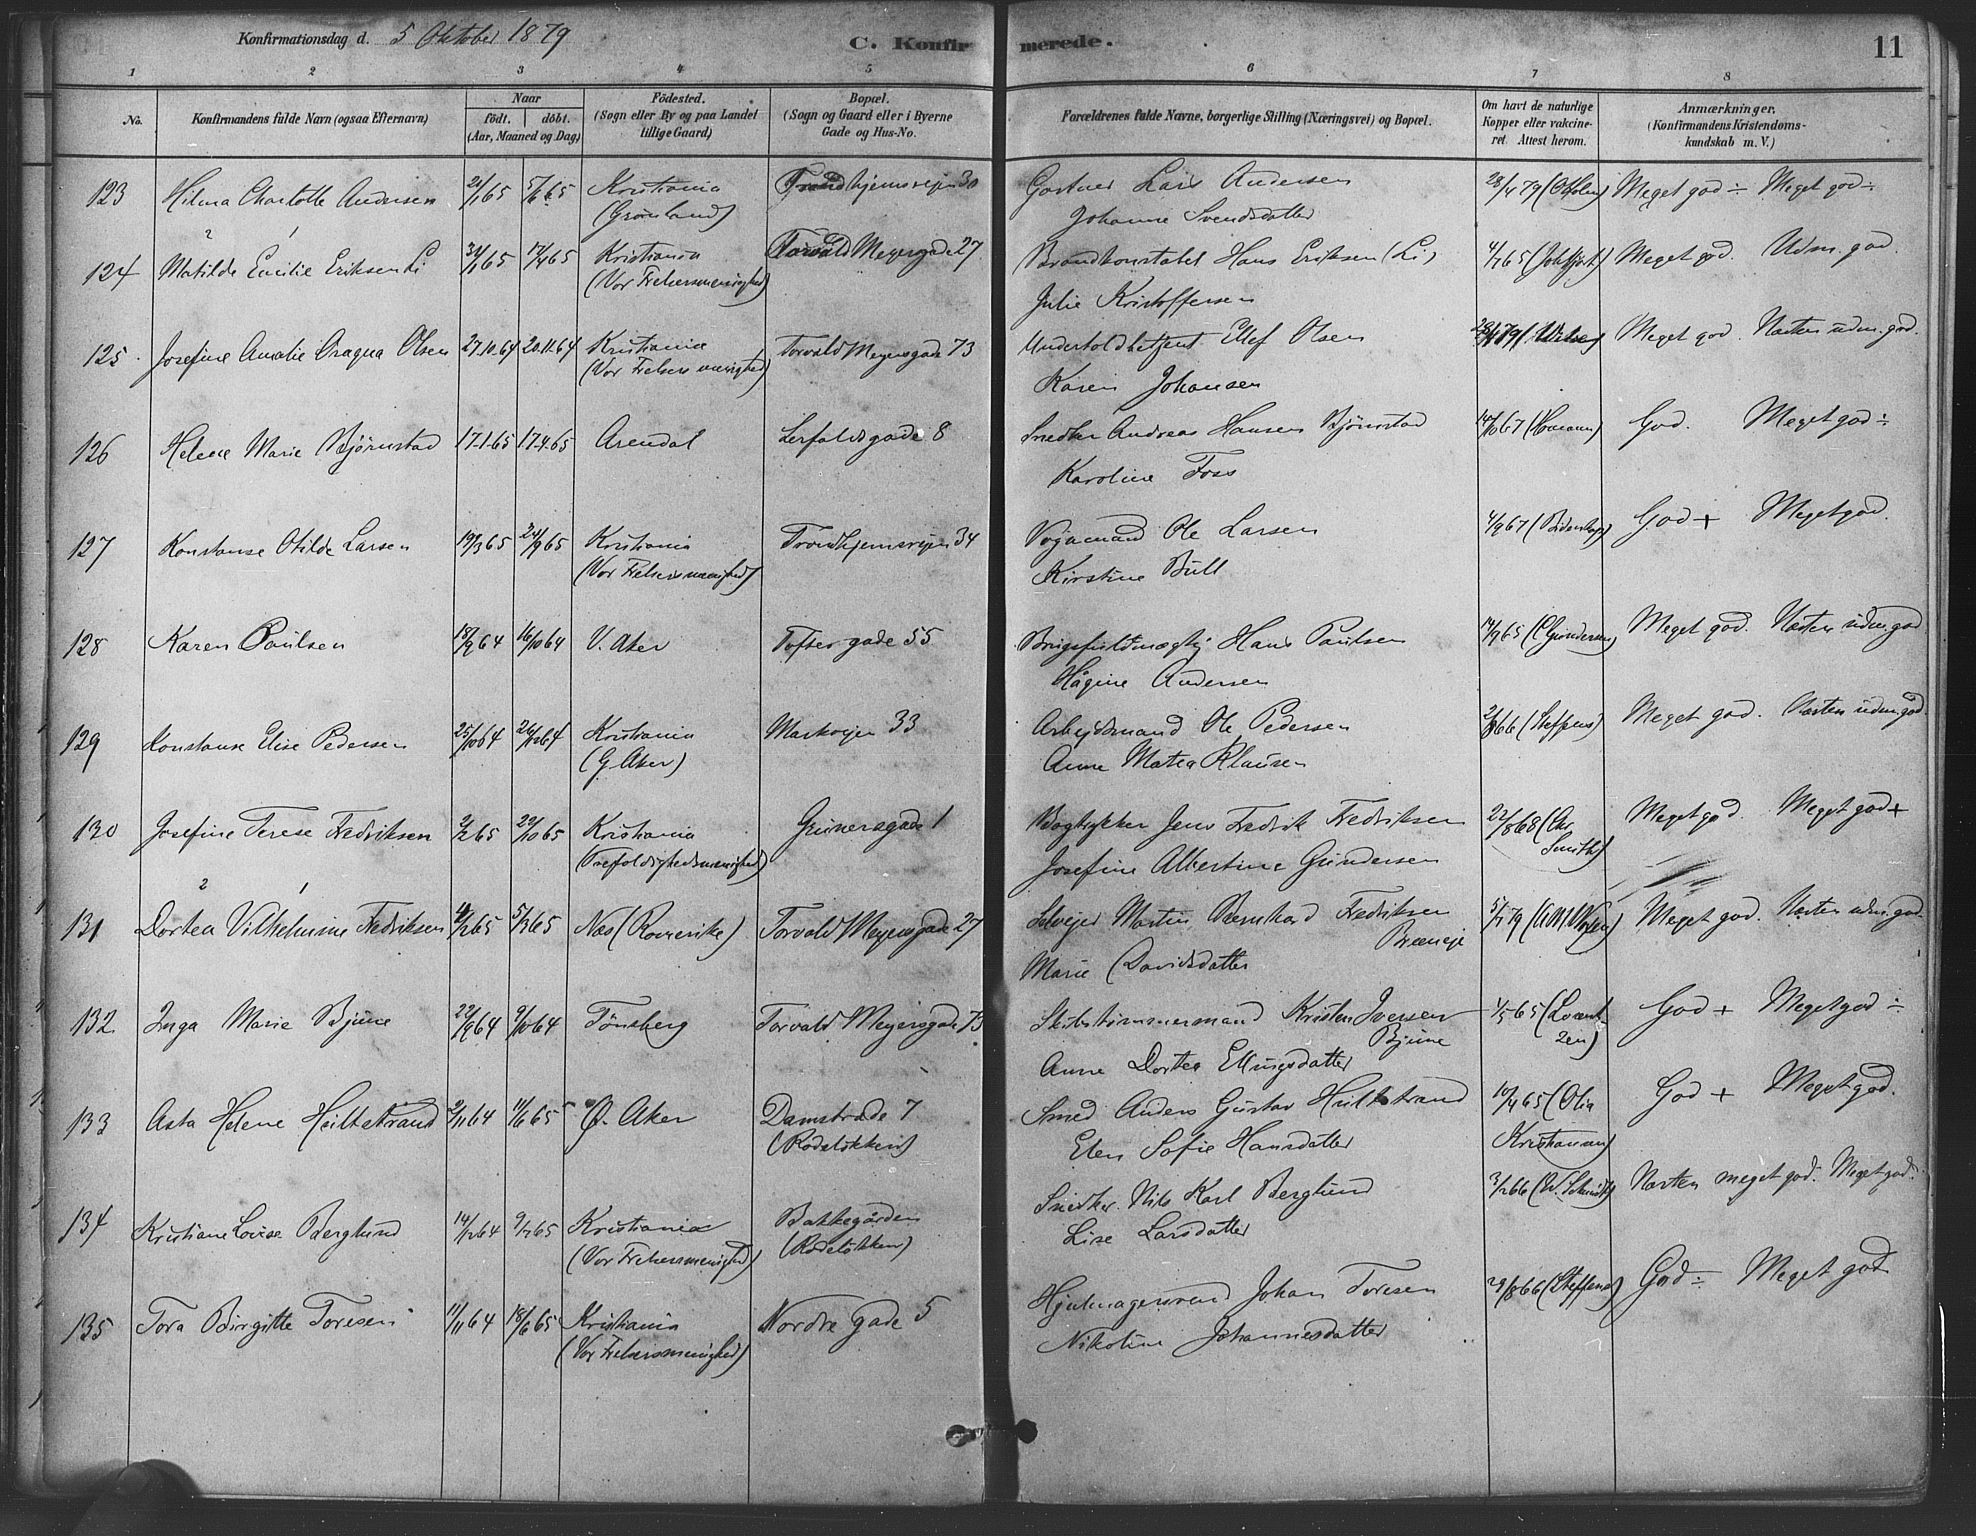 Konfirmationsdag d. 5 Oktober 1879
C. Konfirmerede.
11
1 2 3 4 5 6 7 8
No. Konfirmandens fulde Navn (ogsaa Efternavn) Naar födt. döbt. (Aar, Maaned og Dag) Födested. (Sogn eller By og paa Landet tillige Gaard) Bopæl. (Sogn og Gaard eller i Byerne Gade og Hus-No. Forældrenes fulde Navne, borgerlige Stilling (Næringsvei) og Bopæl. Om havt de naturlige Kopper eller vakcineret Attest herom. Anmærkninger. (Konfirmandens Kristendomskundskab m. V.)
123 Hilma Charlotte Andersen 2/1 65 5/6 65 Kristiania Trondhjemsvejen 30 Gartner Lars Andersen 28/4 79 Meget god ÷ Meget god ÷
(Grønland) Johanne Svendsdatter
124 Matilde Emilie Eriksen Li 31/1 65 17/4 65 Kristiania Torvald Meyersgade 27 Brandkonstabel Hans Eriksen (Li) 4/7 65 Meget god. Udm. god.
(Vor Frelsersmenighed) Julie Kristoffersen
125. Josefine Amalie Dragua Olsen 27.10.64 20.11.64 Kristiania Torvald Meyersgade 73 Undertoldbetjent Ellef Olsen Meget god Næsten udm. god.
(Vor Frelsers menighed) Karen Johansen
126 Helene Marie Bjørnstad 17.1.65 17.4.65 Arendal Lerfaldsgade 8 Snedker Andreas Hansen Bjørnstad 14/10 67 (Homann) God. Meget god ÷
Karoline Foss
127 Konstanse Otilde Larsen 19/3 65 24/9 65 Kristiania Trondhjemsvejen 34 Vognmand Ole Larsen 4/9 67 (Bidenkap) God + Meget god.
(Vor Frelsersmenighed) Kirstine Bull
128 Karen Paulsen 18/9 64 16/10 64 V. Aker Toftesgade 55 Brugsfuldmægtig Hans Paulsen 14/9 65 (Gundersen) Meget god. Næsten udm. god
Hågine Andersen
129 Konstanse Elise Pedersen 25/10 64 26/12 64 Kristiania Markvejen 33 Arbejdsmand Ole Pedersen (Steffens) Meget god. Næsten udm. god.
(G. Aker) Anne Matea Klausen
130 Josefine Terese Fredriksen 2/2 65 29/10 65 Kristiania Grünersgade 1 Bogtrykker Jens Fredrik Fredriksen 22/8 68 (Chr. Meget god. Meget god +
(Trefoldighedsmenighed) Josefine Albertine Gundersen Smith)
131 Dortea Vilhelmine Fredriksen 5/3 65 Næs (Romerike) Torvald Meyersgade 27 Selvejer Martin Bernhard Fredriksen 5/7 79 Meget god. Næsten udm. god.
Bræneje
Marie Davidsdatter
132 Inga Marie Bjune 29/9 64 9/10 64 Tønsberg Torvald Meyersgade 73 Skibstømmermand Kristen Iversen 1/5 65 (Lorent God + Meget god ÷
Bjune zen)
Anne Dortea Ellingsdatter
133 Asta Helene Hiltestrand 9/11 64 11/6 65 Ø. Aker Damstræde 7 Smed Anders Gustav Hiltestrand 10/4 65 (Olia God + Meget god.
(Rodeløkken) Elen Sofie Hansdatter Kristiansen)
134 Kristiane Louise Berglund 14/12 64 9/7 65 Kristiania Bakkegården Snedker Nils Karl Berglund 3/2 66 (W. Schmidt) Næsten meget god. Meget god.
(Vor Frelsersmenighed) (Rodeløkken) Lise Larsdatter
135 Tora Birgitte Toresen 11/11 64 18/6 65 Kristiania Nordre gade 5 Hjulmagersvend Johan Toresen 29/8 66 (Steffens) God ÷ Meget god
(Vor Frelsersmenighed) Nikoline Johannesdatter